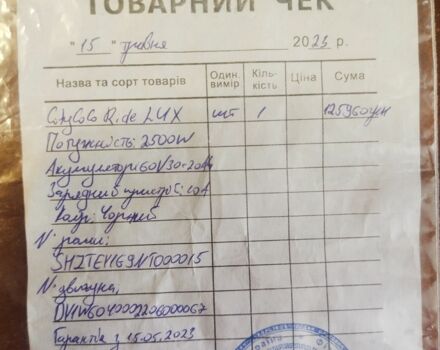 ТОВАРНИЙ ЧЕК
"15" травня 2023 р.
Назва та сорт товарів Один. вимір Кіль-кість Ціна Сума
CityCoCo Ride LUX шт 1 125960грн
Потужність: 2500W
Акумулятор: 60V30-20Ah
Зарядний пристрій: 10A
Колір: Чорний
№ рами:
SHZTEY1G9NT000015
№ двигуна,
Гарантія з 15.05.2023